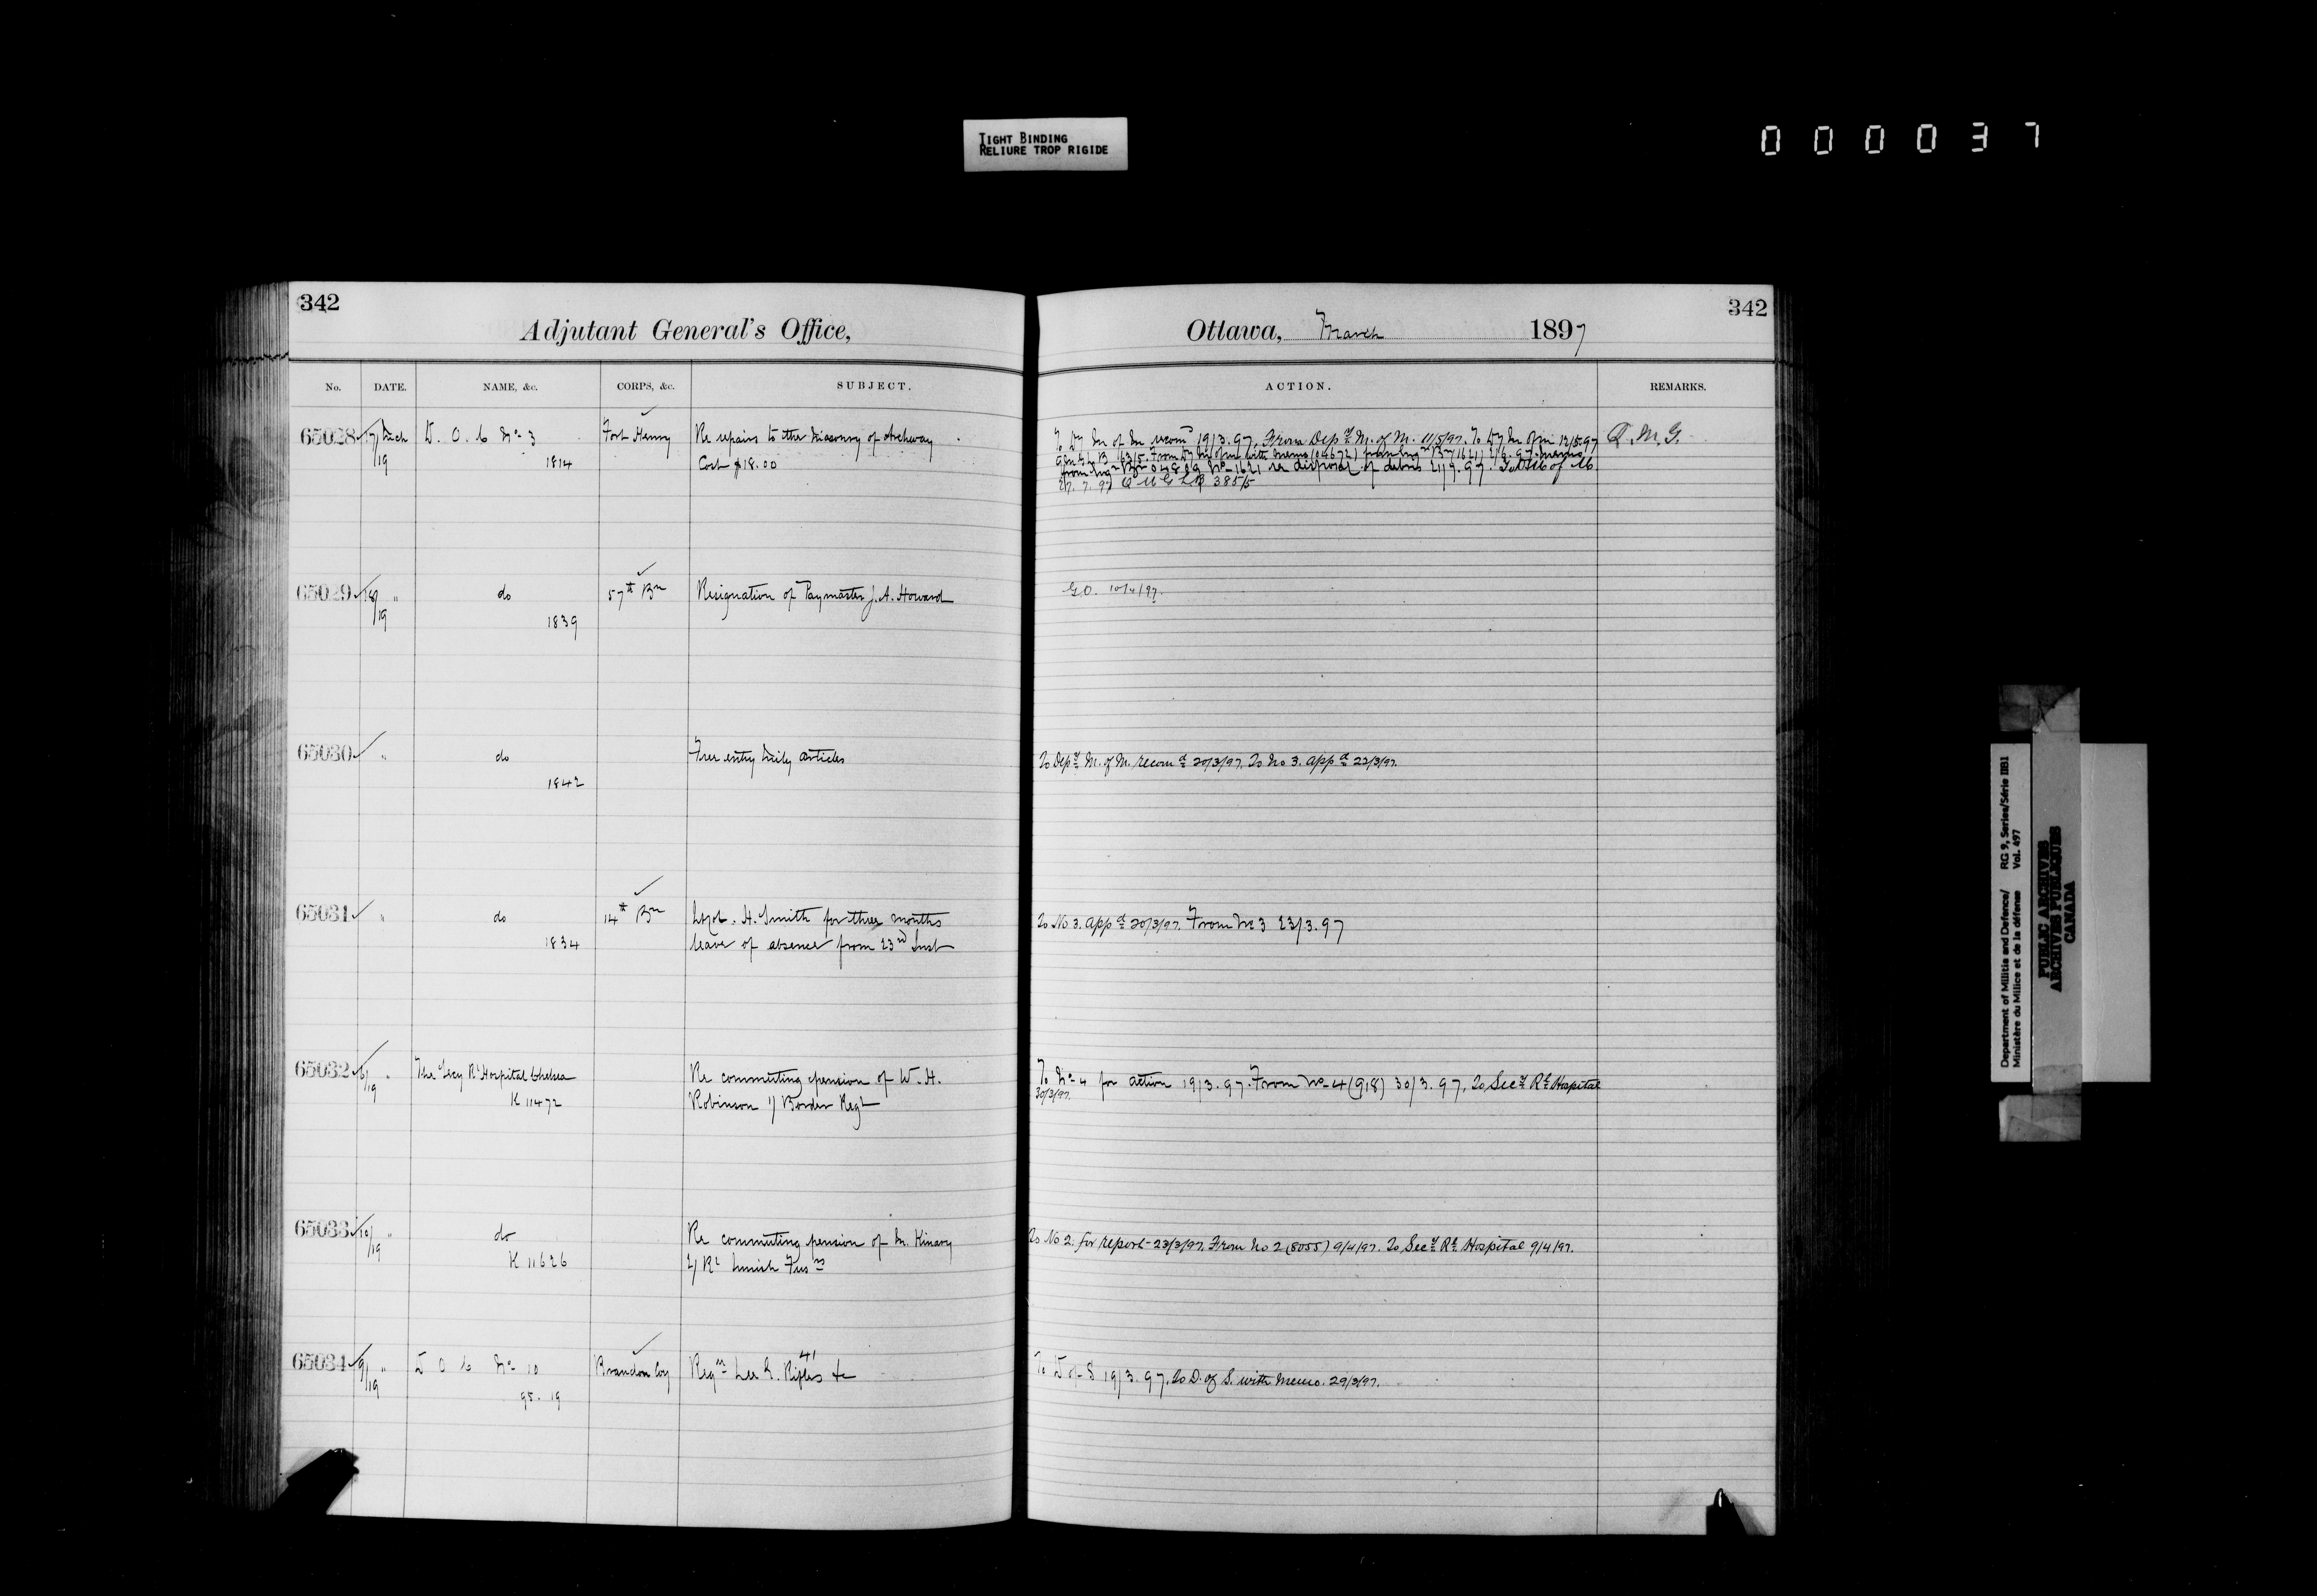 TIGHT BINDING
RELIURE TROP RIGIDE
000037
342
Adjutant General's Office,
342
Ottawa, March 1897
No. DATE. NAME, &c. CORPS, &c. SUBJECT.
ACTION. REMARKS.
65028 17/19 Mch D. O. C No 3 Fort Henry Re repairs to the masonry of Archway
1814 Cost $18.00
To Dy M of M recomd 19/3.97. From Depy M. of M. 11/5/97. To Dy M of M 12/5.97 Q.M.G.
re disposal of debris 21/9.97. To DM of M.
27.9.97 Q M G LB 385/5
65029 18/19 " do 57th Bn Resignation of Paymaster J. A. Howard
1839
G.O. 10/4/97.
65030 " do Free entry Mily Articles
1842
To Depy M. of M. recomd 20/3/97. To No 3. appd 22/3/97.
65031 " do 14th Bn H. Smith for three months
1834 leave of absence from 23rd Inst
To No 3. appd 20/3/97. From No 3 23/3.97
65032 6/19 " The Secy Rl Hospital Chelsea Re commuting pension of W. H.
K 11472 Robinson 1/ Border Regt
To No 4 for action 19/3.97. From No 4 (918) 30/3.97. To Secy Rl Hospital
30/3/97.
65033 10/19 " do Re commuting pension of M. Kinary
K 11626 2/ Rl Innish Fusrs
To No 2. for report 23/3/97. From No 2 (8055) 9/4/97. To Secy Rl Hospital 9/4/97.
65034 9/19 " D O C No 10 Brandon Coy Reqn 41 Rifles &c
95.19
To D of S 19/3.97. To D. of S. with Memo. 29/3/97.
Department of Militia and Defence/ RG 9, Series/Série IIB1
Ministère du Milice et de la défense Vol. 497
PUBLIC ARCHIVES
ARCHIVES PUBLIQUES
CANADA